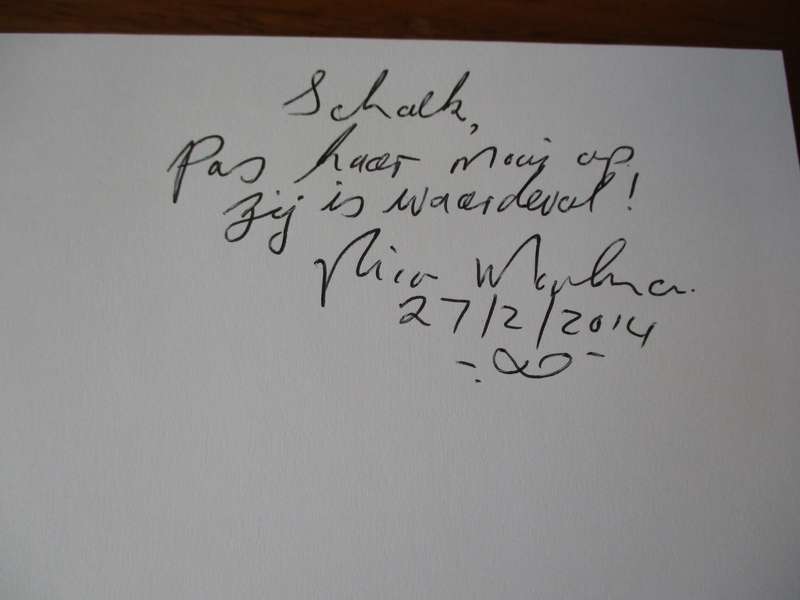 Schalk,
Pas haar mooi op
Zij is waardevol!
27/2/2014